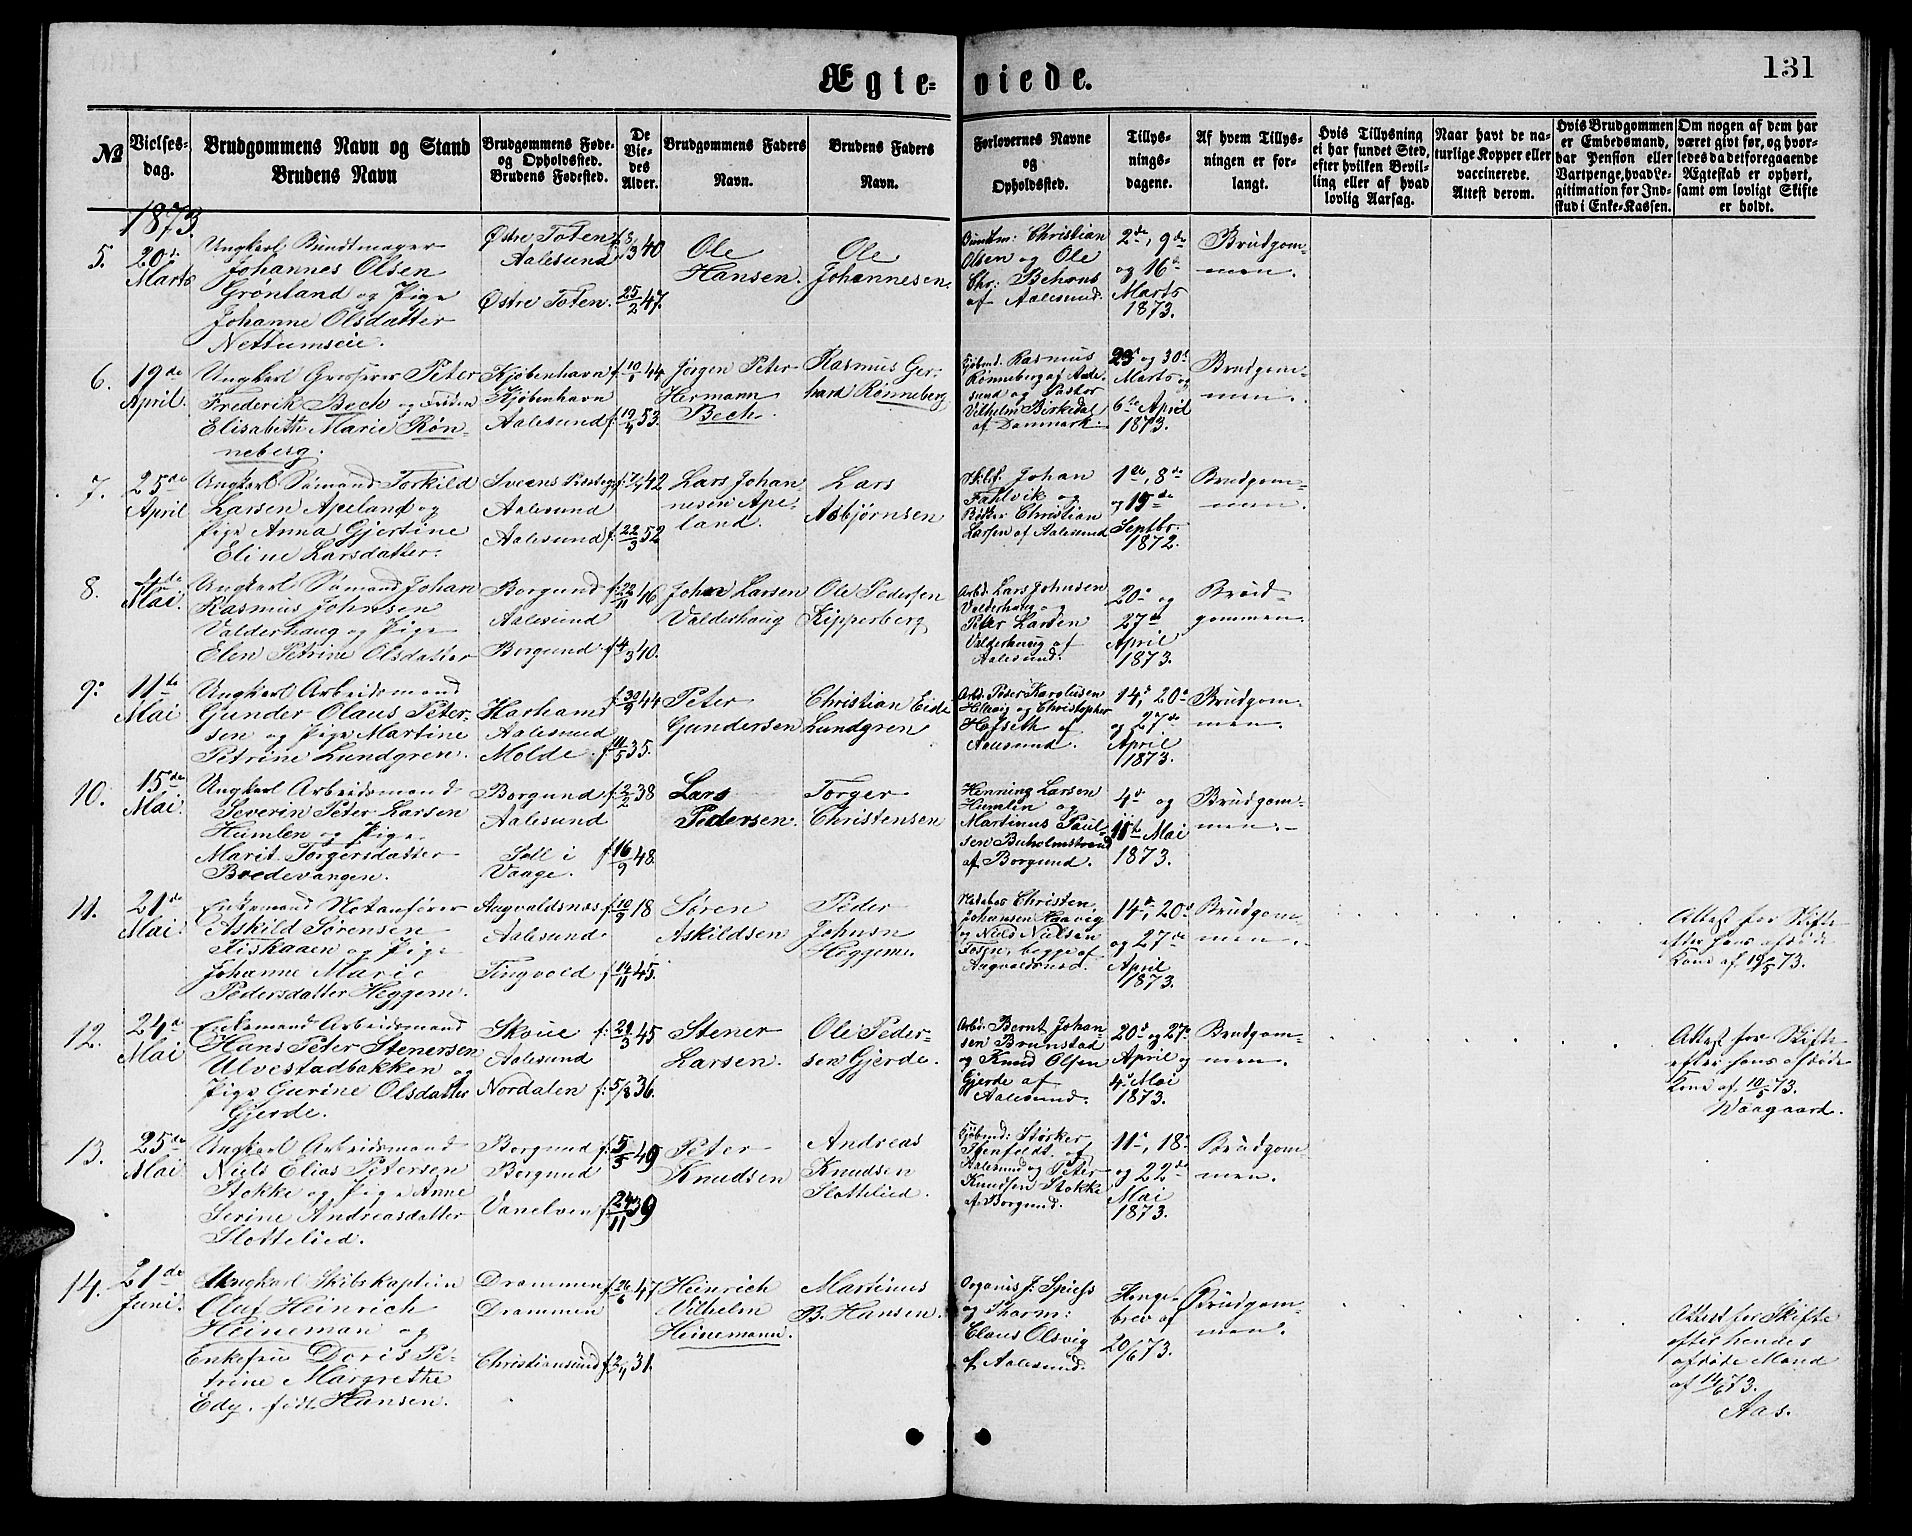 131
Ægte-viede.
No
Vielses-
dag.
Brudgommens Navn og Stand
Brudens Navn
Brudgommens Føde-
og Opholdssted.
Brudens Fødested.
De
Vie-
des
Alder.
Brudgommens Faders
Navn.
Brudens Faders
Navn.
Forlovernes Navne
og
Opholdssted.
Tillys-
nings-
dagene.
Af hvem Tillys-
ningen er for-
langt.
Hvis Tillysning
ei har fundet Sted,
efter hvilken Bevil-
ling eller af hvad
lovlig Aarsag.
Naar havt de na-
turlige Kopper eller
vaccinerede.
Attest derom.
Hvis Brudgommen
er Embedsmand,
har Pension eller
Vartpenge, hvad Le-
gitimation for Ind-
skud i Enke-Kassen.
Om nogen af dem har
været givt før, og hvor-
ledes da det foregaaende
Ægteskab er ophørt,
samt om lovligt Skifte
er holdt.
1873.
5.
20de
Marts
Ungkarl Bundtmager
Johannes Olsen
Grønland og Pige
Johanne Olsdatter
Nettumseie.
Østre Toten
Aalesund
Østre Toten.
f. 8/3 40
25/2 47.
Ole
Hansen.
Ole
Johannesen.
Buntm: Christian
Olsen og Ole
Chr: Behrns
af Aalesund.
2de, 9de
og 16de
Marts
1873.
Brudgom-
men.
6.
19de
April.
Ungkarl Grosserer Peter
Frederik Bech og Frøken
Elisabeth Marie Røn-
neberg.
Kjøbenhavn
Kjøbenhavn
Aalesund
f. 10/1 44.
f. 19/4 53.
Jørgen Peter
Hermann
Bech.
Rasmus Ger-
hard Rønneberg
Kjøbmd. Rasmus
Rønneberg af Aale-
sund og Pastor
Vilhelm Birkedal
af Danmark.
23 og 30d
Marts og
6te April
1873.
Brudgom-
men.
7.
25de
April
Ungkarl Sømand Torkild
Larsen Apeland og
Pige Anna Gjertine
Eline Larsdatter.
Sveens Præstegj.
Aalesund
Aalesund
42
f. 22/3 52
Lars Johan
nesen Ape-
land.
Lars
Asbjørnsen
Skibsf. Johan
Fahlvik og
Christian
Larsen af Aalesund
1de, 8de
og 15de
Septbr.
1872.
Brudgom-
men.
8.
4de
Mai.
Ungkarl Sømand Johan
Rasmus Johnsen
Valderhaug og Pige
Elen Petrine Olsdatter
Borgund
Aalesund
Borgund
f. 22/11 46
f. 4/3 40.
John Larsen
Valderhaug
Ole Pedersen
Kipperberg
Arbd. Lars Johnsen
Valderhaug og
Peter Larsen
Valderhaug af
Aalesund.
20de og
27de
April
1873.
Brud-
gommen.
9.
11te
Mai
Ungkarl Arbeidsmand
Gunder Olaus Peter-
sen og Pige Martine
Petrine Lundgren.
Harham
Aalesund
Molde
f. 30/9 44
f. 11/5 35.
Peter
Gundersen
Christian Eide
Lundgren
Arbd. Peder Karolusen
Hellevig og Christopher
Hofseth af
Aalesund.
14d, 20de
og 27de
April
1873.
Brudgom-
men.
10.
15de
Mai.
Ungkarl Arbeidsmand
Severin Peter Larsen
Humlen og Pige
Marit Torgersdatter
Bredevangen.
Borgund
Aalesund
Sell i
Vaage.
f. 2/2 38
f. 16/9 48.
Lars
Pedersen.
Torger
Christensen
Henning Larsen
Humlen og
Martinus Paul-
sen Buholmstrand
af Borgund.
4de og
11te Mai
1873.
Brudgom-
men.
11.
21de
Mai.
Enkemand Notanfører
Askild Sørensen
Fiskaaen og Pige
Johanne Marie
Pedersdatter Heggem.
Augvaldsnæs
Aalesund
Tingvold
f. 10/9 18
f. 14/11 45.
Søren
Askildsen
Peder
Johnsn
Heggem.
Christen
Johansen Haavig
og Niels Nielsen
Fosen, begge af
Augvaldsnæs.
14de, 20d
og 27de
April
1873.
Brudgom-
men.
Attest for Skifte
efter hans afdøde
Kone af 19/5 73.
12.
24de
Mai
Enkemand Arbeidsmand
Hans Peter Stenersen
Ulvestadbakken og
Pige Gurine Olsdatter
Gjerde.
Skoue
Aalesund
Nordalen
f. 29/3 45
f. 5/8 36.
Stener
Larsen.
Ole Peder-
sen Gjerde.
Arbd. Bernt Johan-
sen Brunstad
og Knud Olsen
Gjerde af
Aalesund.
20de og 27de
April og
4de Mai
1873.
Brudgom-
men.
Attest for Skifte
efter hans afdøde
Kone af 10/5 73.
Waagaard.
13.
25de
Mai
Ungkarl Arbeidsmand
Niels Elias Petersen
Stokke og Pige Anne
Serine Andreasdatter
Slottelied.
Borgund
Borgund
Vanelven
f. 5/5 49
f. 24/11 39
Peter
Knudsen
Andreas
Knudsen
Slottelied.
Kjøbmd: Størker
af
Aalesund og Peter
Knudsen Stokke
af Borgund.
11te, 18de
og 22de
Mai
1873.
Brudgom-
men.
14.
21de
Juni.
Ungkarl Skibskaptein
Oluf Heinrich
Heineman og
Enkefru Doris Pe-
trine Margrethe
Edg. født Hansen.
Drammen
Drammen
Christiansund
f. 26/6 47
f. 2/4 31.
Heinrich
Vilhelm
Heinemann.
Martinus
B. Hansen.
Organist J. Spiess
og Pharm:
Claus Olsvig
af Aalesund.
Konge-
brev af
20/6 73.
Brudgom-
men.
Attest for Skifte
efter hendes
afdøde Mand
af 14/6 73.
Aas.